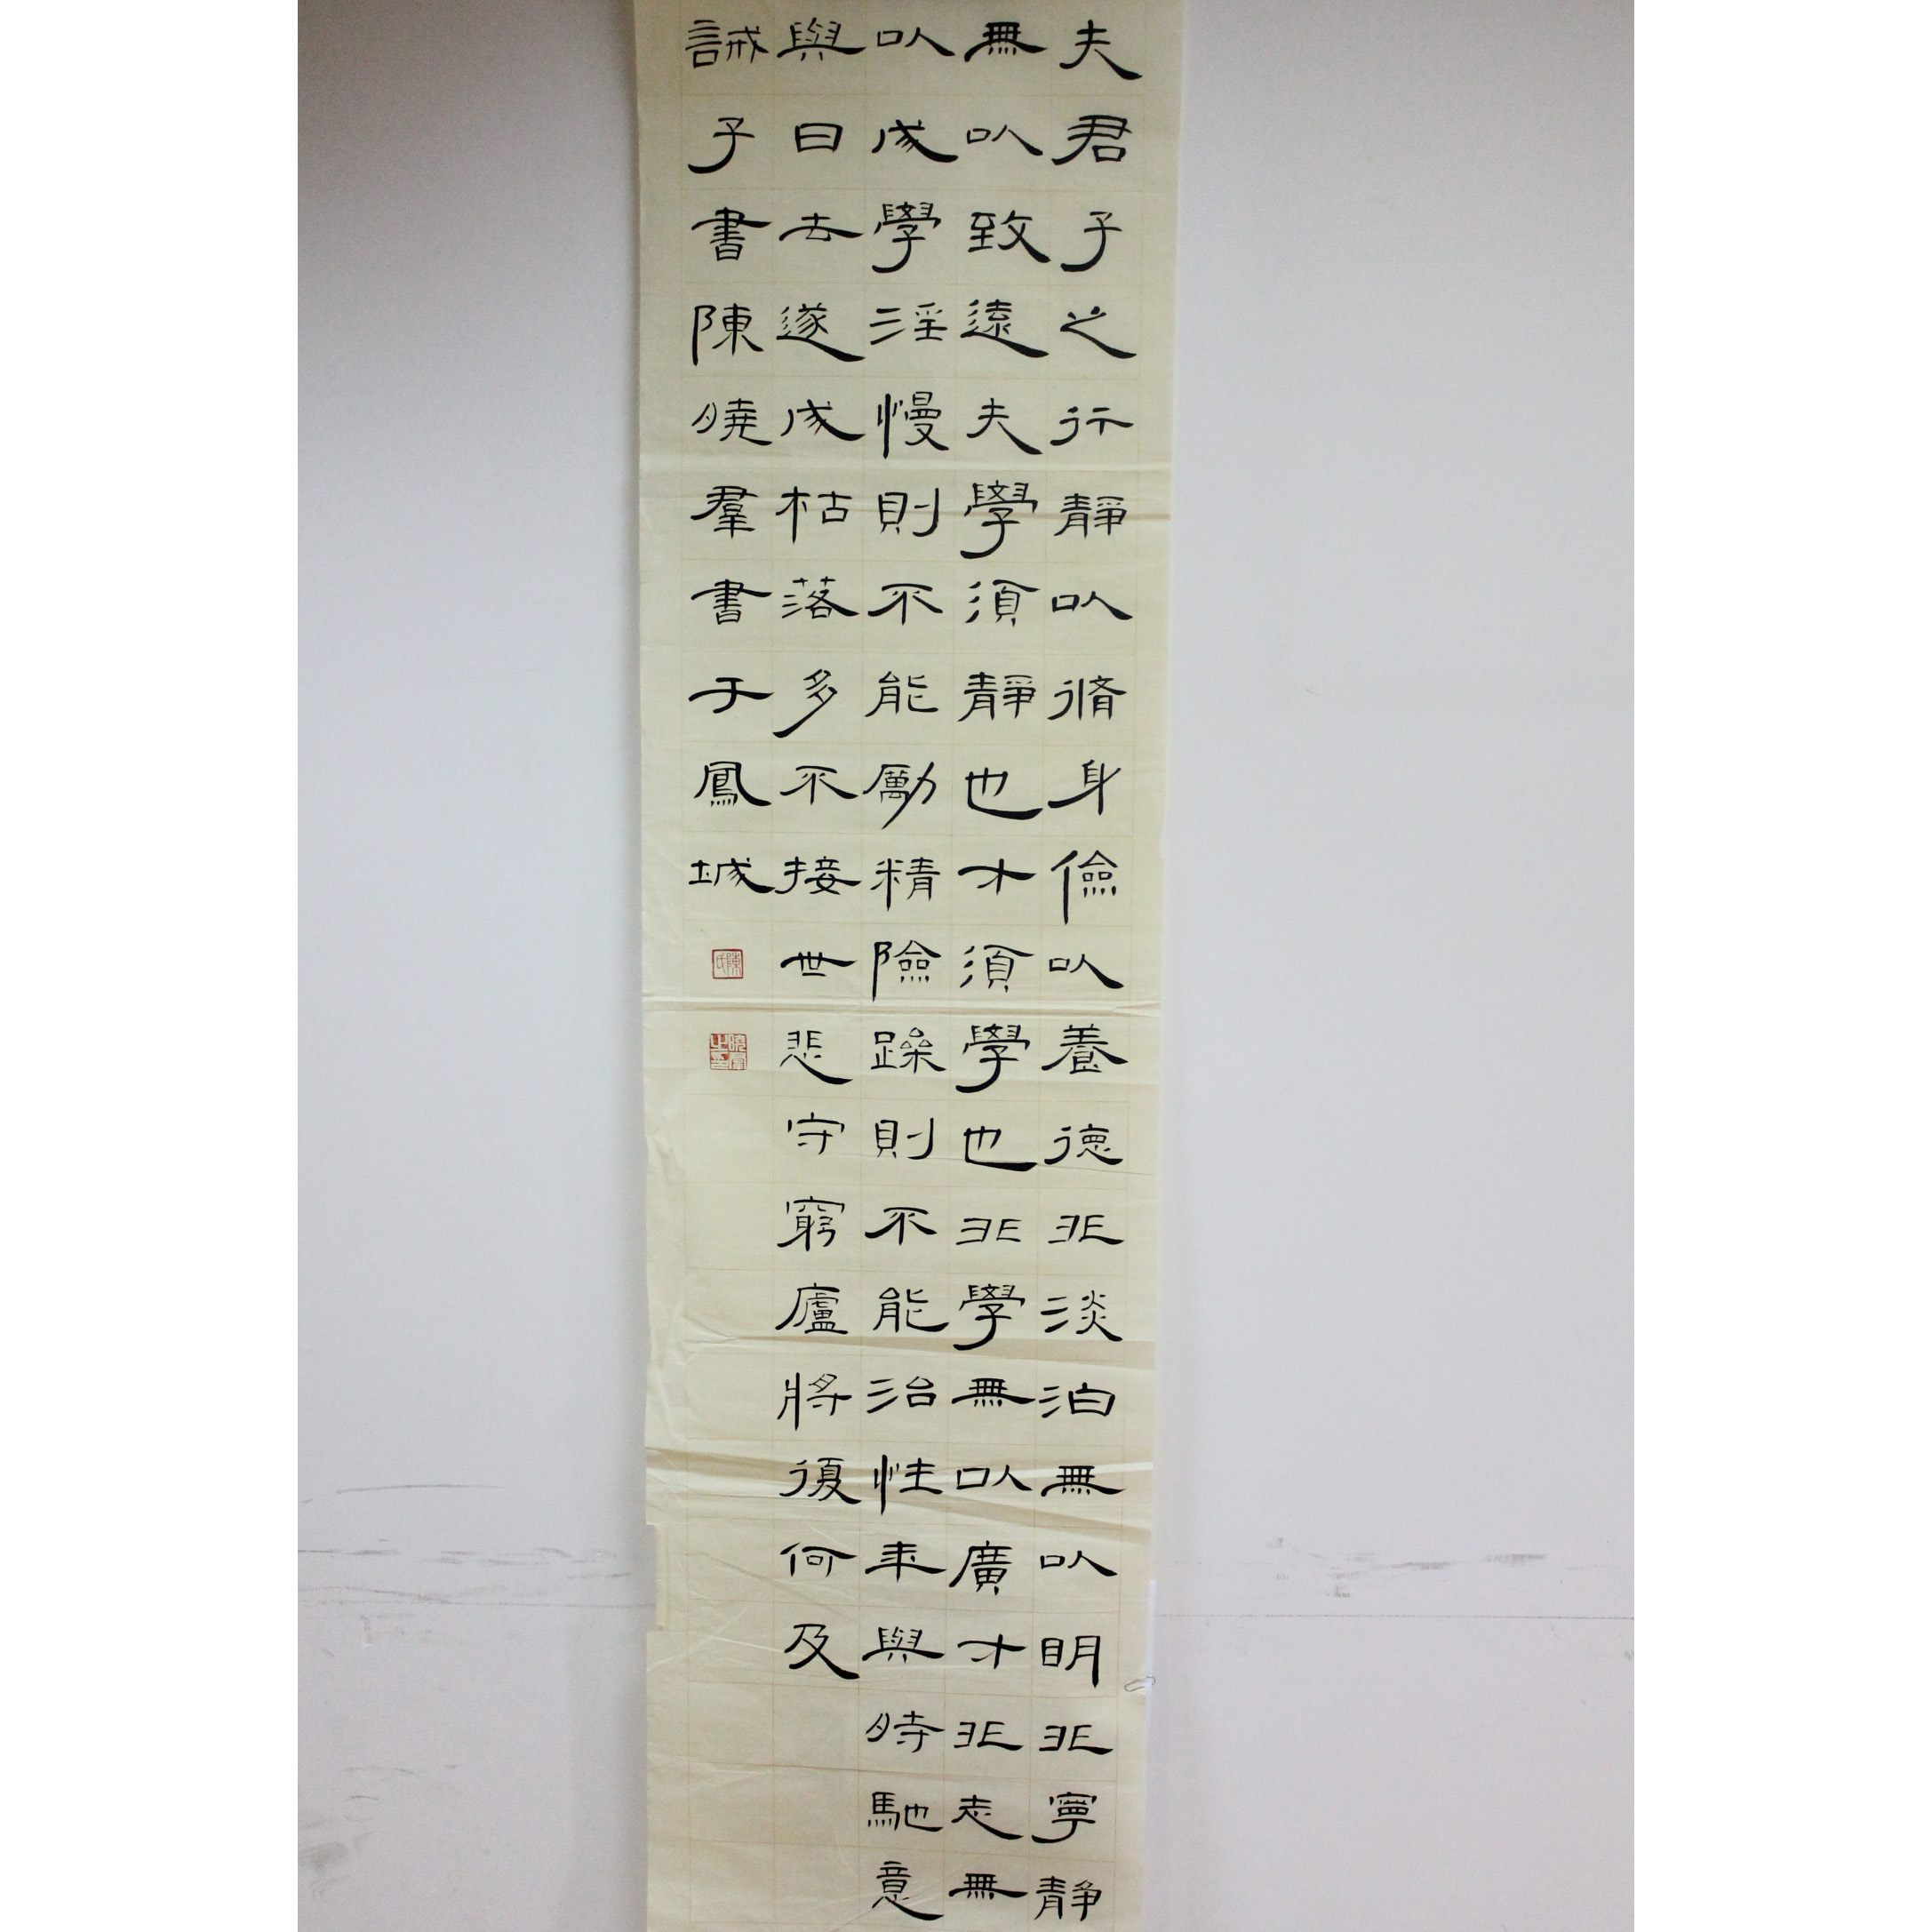 夫君子之行靜以脩身儉以養德非淡泊無以明非寧靜
無以致遠夫學須靜也才須學也非學無以廣才非志無
以成學淫慢則不能勵精險躁則不能治性年與時馳意
與日去遂成枯落多不接世悲守窮廬將復何及
誡子書陳曉羣書于鳳城
陳氏
曉羣之印